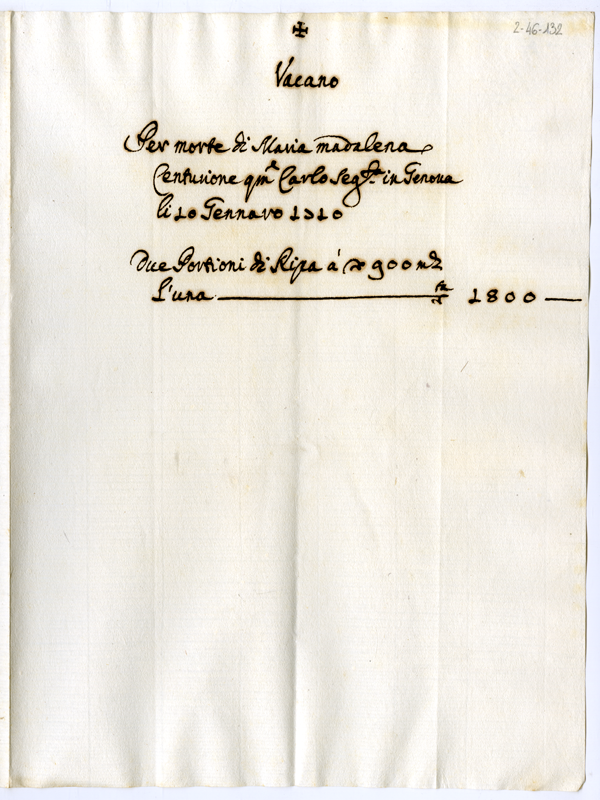 2-46-132
✠
Vacano
Per morte di Maria madalena
Centurione qm Carlo segta in Genova
li 10 Gennaro 1710
Due Portioni di Ripa á 900 m2
L'una 1800